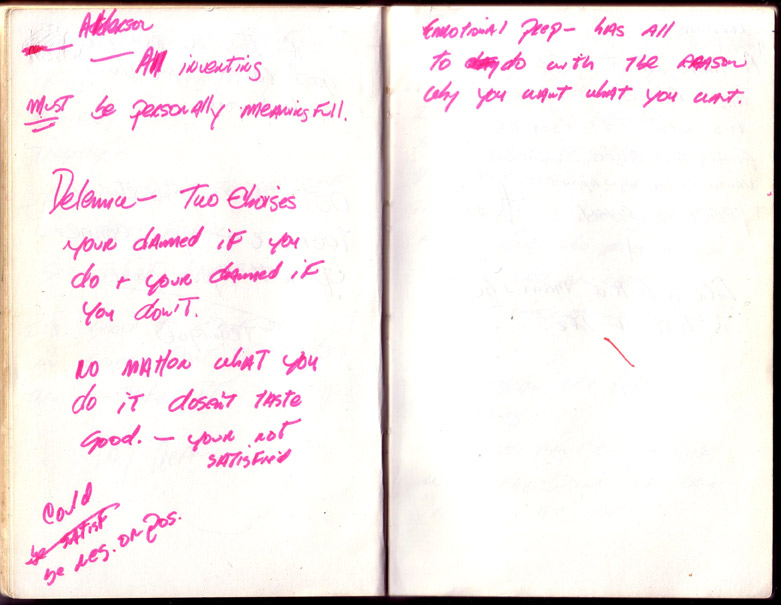 — Adderson
— All inventing
MUST be personally meaningfull.
Delemma — Two Choises
your damned if you
do + your damned if
you don't.
No matter what you
do it doesn't taste
good. — your not
satisfied
Could
be satisf
be neg. or pos.
Emotional prep — has all
to do with the reason
why you want what you want.